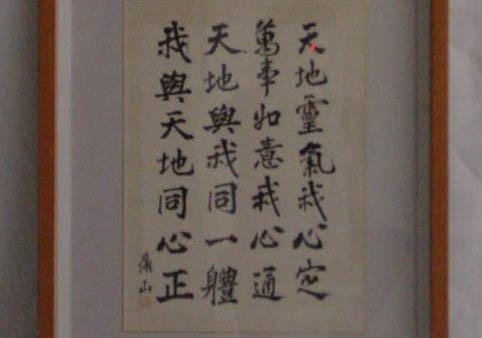 天地靈氣我心定
萬事如意我心通
天地與我同一體
我與天地同心正